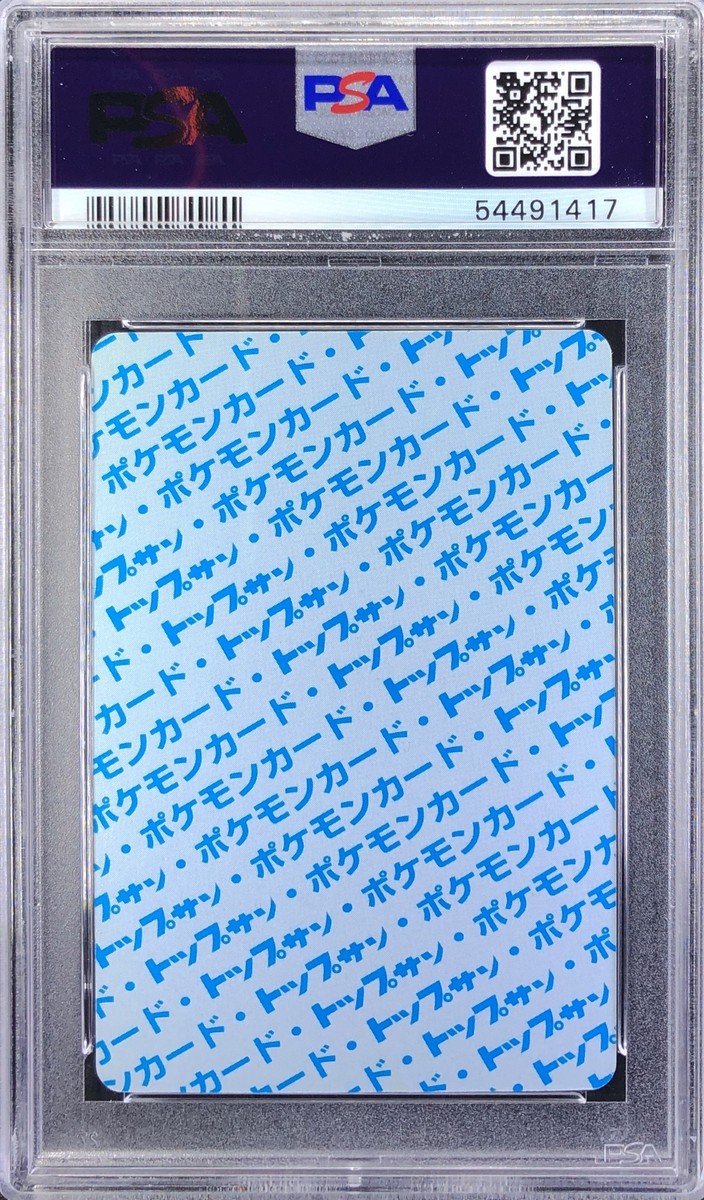 PSA
PSA
54491417
ンカード
ケモンカード・
ポケモンカード・ト
サン・ポケモンカード・トップ
プサン・ポケモンカード・トップ
トップサン・ポケモンカード・トッ
ド・トップサン・ポケモンカード・
カード・トップサン・ポケモンカー
モンカード・トップサン・ポケモン
ポケモンカード・トップサン・ポケ
ン・ポケモンカード・トップサン・ポ
プサン・ポケモンカード・トップサ
トップサン・ポケモンカード・トッ
ド・トップサン・ポケモンカード・
カード・トップサン・ポケモンカ
ンカード・トップサン・ポケモ
カード・トップサン・ポ
ド・トップサン
トップ
PSA